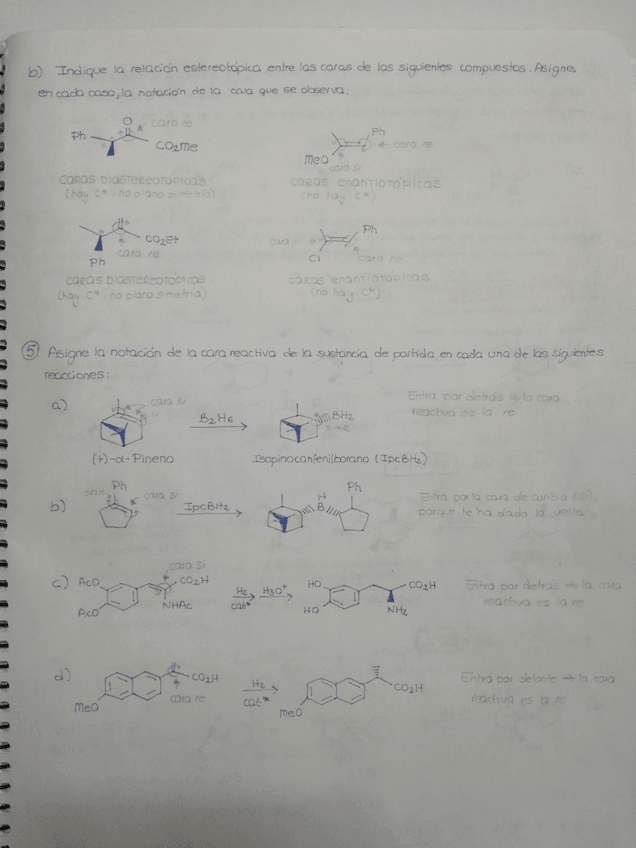 b) Indique la relación estereotópica entre las caras de los siguientes compuestos. Asigne,
en cada caso, la notación de la cara que se observa.
O cara re
Ph CO2Me
CARAS DIASTEREOTÓPICAS
(hay C*, no plano simetría)
Ph
cara re
MeO cara si
CARAS ENANTIOTÓPICAS
(no hay C*)
CO2Et
cara re
Ph
CARAS DIASTEREOTÓPICAS
(hay C*, no plano simetría)
Ph
cara si
Cl cara re
CARAS ENANTIOTÓPICAS
(no hay C*)
5 Asigne la notación de la cara reactiva de la sustancia de partida en cada una de las siguientes
reacciones:
a) cara si
H
B2H6
BH2
(+)-α-Pineno
Isopinocanfenilborano (IpcBH2)
Entra por detrás ⇒ la cara
reactiva es la re
b) Ph
cara si
IpcBH2
H
B
Ph
Entra por la cara de arriba (si),
porque le ha dado la vuelta
c) AcO
AcO
cara si
CO2H
NHAc
H2
cat*
H3O+
HO
HO
CO2H
NH2
Entra por detrás ⇒ la cara
reactiva es la re
d) MeO
CO2H
cara re
H2
cat*
MeO
CO2H
Entra por delante ⇒ la cara
reactiva es la re